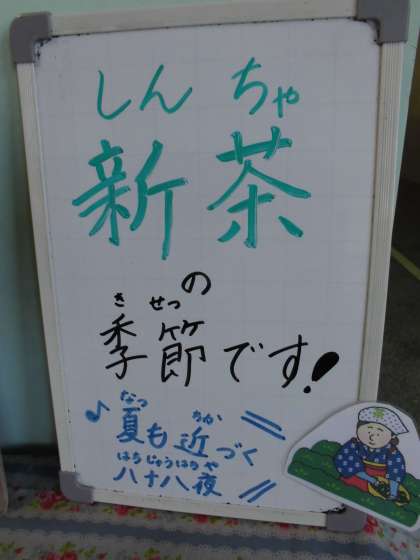 しんちゃ
新茶
の
きせつ
季節です!
なつ ちか
♪夏も近づく
はちじゅうはちや
八十八夜